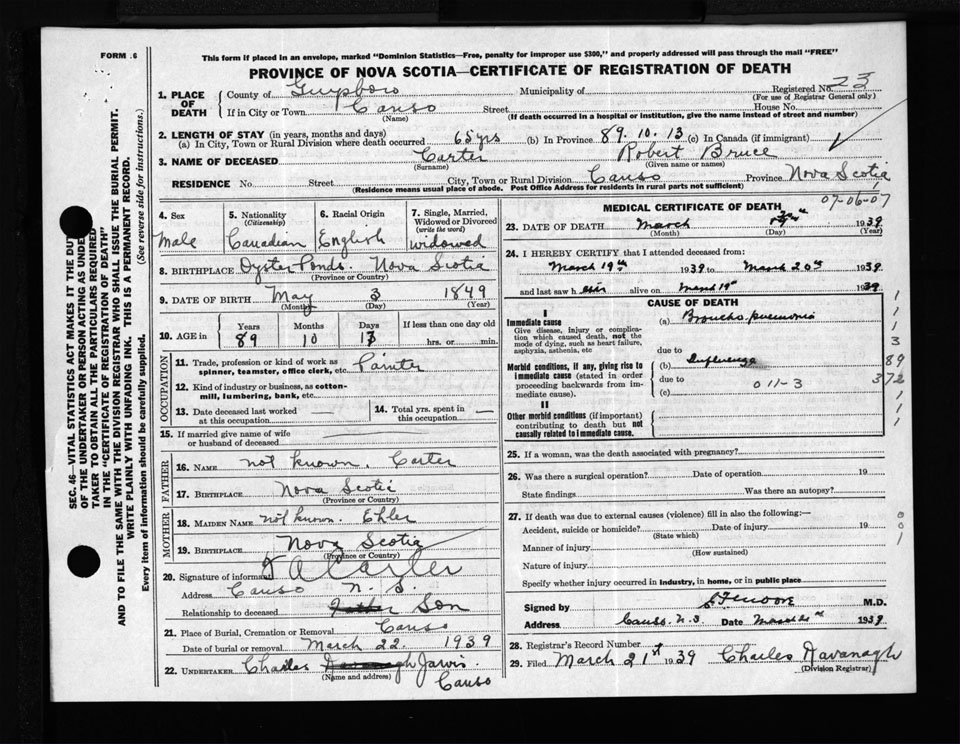 FORM .6
This form if placed in an envelope, marked "Dominion Statistics—Free, penalty for improper use $300," and properly addressed will pass through the mail "FREE"
PROVINCE OF NOVA SCOTIA—CERTIFICATE OF REGISTRATION OF DEATH
SEC. 46—VITAL STATISTICS ACT MAKES IT THE DUTY
OF THE UNDERTAKER OR PERSON ACTING AS UNDER-
TAKER TO OBTAIN ALL THE PARTICULARS REQUIRED
IN THE "CERTIFICATE OF REGISTRATION OF DEATH"
AND TO FILE THE SAME WITH THE DIVISION REGISTRAR WHO SHALL ISSUE THE BURIAL PERMIT.
WRITE PLAINLY WITH UNFADING INK. THIS IS A PERMANENT RECORD.
Every item of information should be carefully supplied. (See reverse side for instructions.)
1. PLACE OF DEATH
County of Guysboro Municipality of Registered No. 23
(For use of Registrar General only)
If in City or Town Canso Street House No.
(Name) (If death occurred in a hospital or institution, give the name instead of street and number)
2. LENGTH OF STAY (in years, months and days)
(a) In City, Town or Rural Division where death occurred 65 yrs (b) In Province 89. 10. 13 (c) In Canada (if immigrant)
3. NAME OF DECEASED Carter Robert Bruce
(Surname) (Given name or names)
RESIDENCE No. Street City, Town or Rural Division Canso Province Nova Scotia
(Residence means usual place of abode. Post Office Address for residents in rural parts not sufficient)
07-06-07
4. Sex Male
5. Nationality (Citizenship) Canadian
6. Racial Origin English
7. Single, Married, Widowed or Divorced (write the word) widowed
8. BIRTHPLACE Oyster Ponds. Nova Scotia
(Province or Country)
9. DATE OF BIRTH May 3 1849
(Month) (Day) (Year)
10. AGE in Years Months Days If less than one day old
89 10 13 hrs. or min.
OCCUPATION
11. Trade, profession or kind of work as spinner, teamster, office clerk, etc. Painter
12. Kind of industry or business, as cotton-mill, lumbering, bank, etc.
13. Date deceased last worked at this occupation —
14. Total yrs. spent in this occupation —
15. If married give name of wife or husband of deceased
FATHER
16. NAME not known. Carter
17. BIRTHPLACE Nova Scotia
(Province or Country)
MOTHER
18. MAIDEN NAME not known. Ehler
19. BIRTHPLACE Nova Scotia
(Province or Country)
20. Signature of informant Carter
Address Canso N. S.
Relationship to deceased Father Son
21. Place of Burial, Cremation or Removal Canso
Date of burial or removal March 22 1939
22. UNDERTAKER Charles Kavanagh Jarvis.
(Name and address) Canso
MEDICAL CERTIFICATE OF DEATH
23. DATE OF DEATH March 1939
(Month) (Day) (Year)
24. I HEREBY CERTIFY that I attended deceased from:
March 19th 1939 to March 20th 1939
and last saw h im alive on March 19th 1939
CAUSE OF DEATH
I
Immediate cause (a) Broncho-pneumonia
Give disease, injury or complication which caused death, not the mode of dying, such as heart failure, asphyxia, asthenia, etc
due to
Morbid conditions, if any, giving rise to immediate cause (stated in order proceeding backwards from immediate cause). (b) Influenza
due to 011-3
(c)
II
Other morbid conditions (if important) contributing to death but not causally related to immediate cause.
1
1
1
3
89
372
1
1
1
25. If a woman, was the death associated with pregnancy?
26. Was there a surgical operation? Date of operation 19
State findings Was there an autopsy?
27. If death was due to external causes (violence) fill in also the following:—
Accident, suicide or homicide? Date of injury 19
(State which)
Manner of injury
(How sustained)
Nature of injury
Specify whether injury occurred in industry, in home, or in public place
0
0
1
Signed by M.D.
Address Canso. N.S. Date March 1939
28. Registrar's Record Number
29. Filed March 21st 1939 Charles Kavanagh
(Division Registrar)